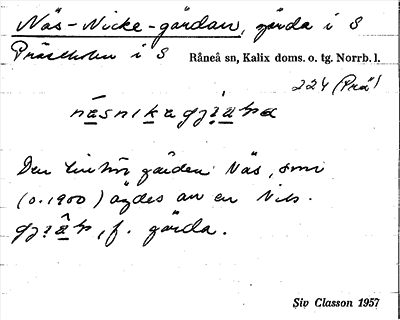 Näs-Nicke-gärdan, gärda i S
Prästholm i S Råneå sn, Kalix doms. o. tg. Norrb. l.
224 (Prä)
Den tillhör gården Näs, som
(o. 1900) ägdes av en Nils.
f. gärda.
Siv Classon 1957